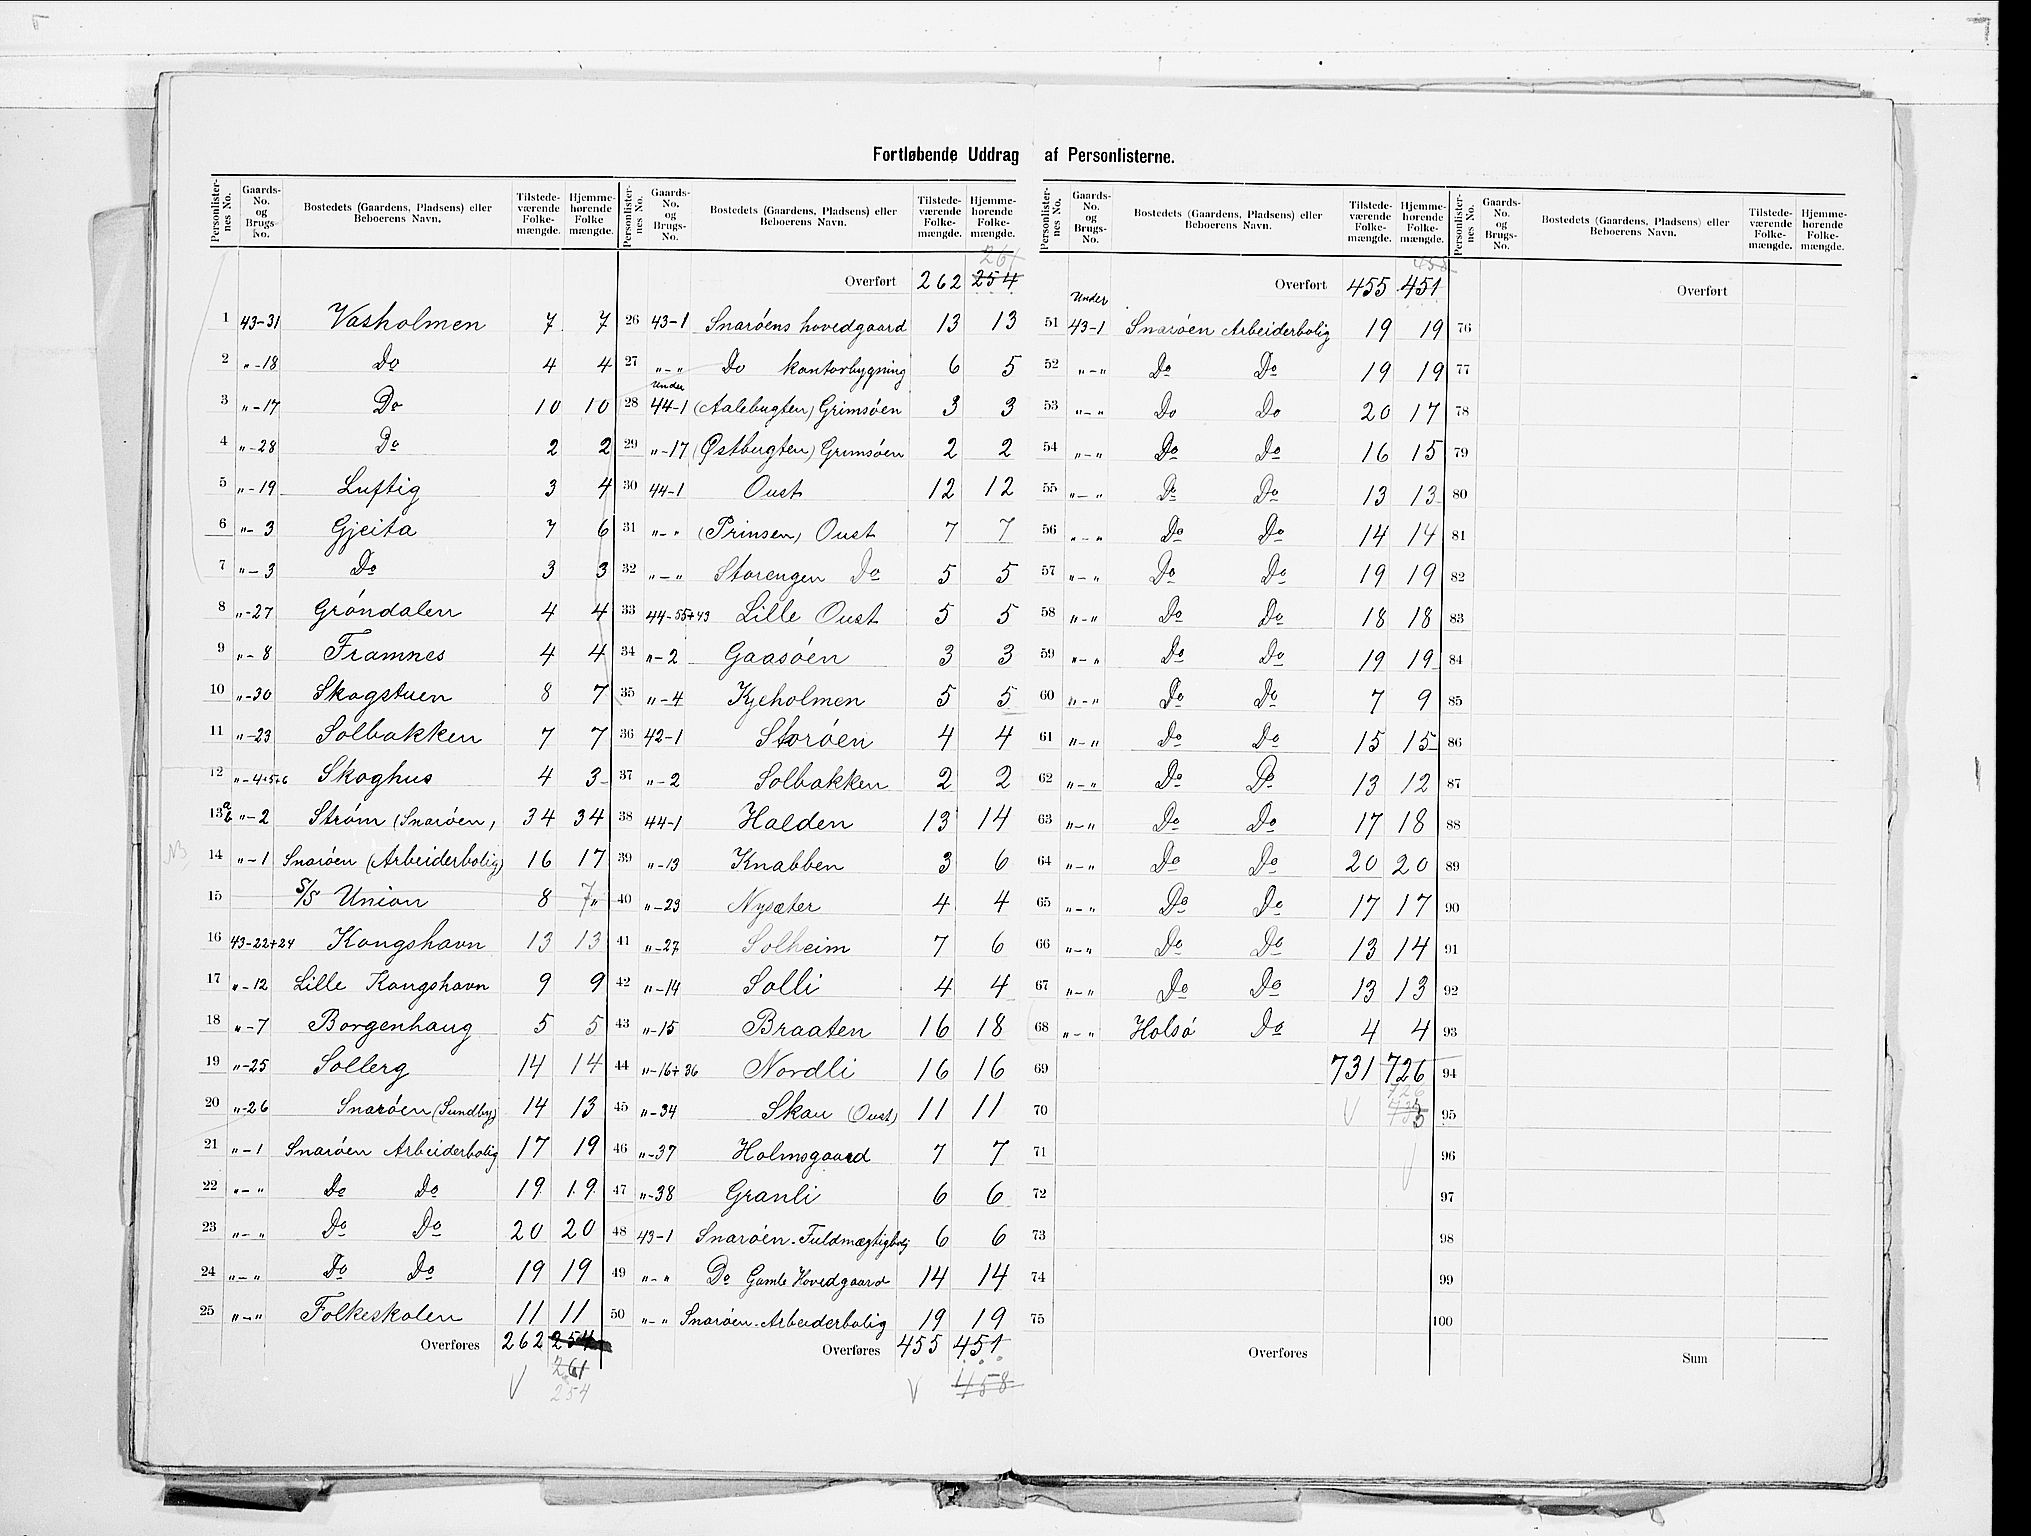 Fortløbende Uddrag af Personlisterne.
Personlisternes No. Gaards-No. og Brugs-No. Bostedets (Gaardens, Pladsens) eller Beboerens Navn. Tilstedeværende Folkemængde. Hjemmehørende Folkemængde.
1 43-31 Vasholmen 7 7
2 „-18 Do 4 4
3 „-17 Do 10 10
4 „-28 Do 2 2
5 „-19 Luftig 3 4
6 „-3 Gjeita 7 6
7 „-3 Do 3 3
8 „-27 Gröndalen 4 4
9 „-8 Framnes 4 4
10 „-30 Skogstuen 8 7
11 „-23 Solbakken 7 7
12 „-4+5+6 Skoghus 4 3
13 a b „-2 Strøm (Snarøen) 34 34
14 „-1 Snarøen (Arbeiderbolig) 16 17
15 S/S Union 8 7„
16 43-22+24 Kongshavn 13 13
17 „-12 Lille Kongshavn 9 9
18 „-7 Borgenhaug 5 5
19 „-25 Solberg 14 14
20 „-26 Snarøen (Sundby) 14 13
21 „-1 Snarøen Arbeiderbolig 17 19
22 „-„ Do Do 19 19
23 „-„ Do Do 20 20
24 „-„ Do Do 19 19
25 „-„ Folkeskolen 11 11
Overføres 262 254
261
254
Personlisternes No. Gaards-No. og Brugs-No. Bostedets (Gaardens, Pladsens) eller Beboerens Navn. Tilstedeværende Folkemængde. Hjemmehørende Folkemængde.
261
Overført 262 254
26 43-1 Snarøens hovedgaard 13 13
27 „-„ Do kontorbygning 6 5
Under
28 44-1 (Aalebugten) Grimsøen 3 3
29 „-17 (Østbugten) Grimsøen 2 2
30 44-1 Oust 12 12
31 „-„ (Prinsen) Oust 7 7
32 „-„ Storengen Do 5 5
33 44-55+43 Lille Oust 5 5
34 „-2 Gaasøen 3 3
35 „-4 Kjeholmen 5 5
36 42-1 Storøen 4 4
37 „-2 Solbakken 2 2
38 44-1 Halden 13 14
39 „-13 Knabben 3 6
40 „-23 Nysæter 4 4
41 „-27 Solheim 7 6
42 „-14 Solli 4 4
43 „-15 Braaten 16 18
44 „-16+36 Nordli 16 16
45 „-34 Skau (Oust) 11 11
46 „-37 Holmsgaard 7 7
47 „-38 Granli 6 6
48 43-1 Snarøen-Fuldmægtigbolig 6 6
49 „-„ Do Gamle Hovedgaard 14 14
50 „-„ Snarøen-Arbeiderbolig 19 19
Overføres 455 451
458
Personlisternes No. Gaards-No. og Brugs-No. Bostedets (Gaardens, Pladsens) eller Beboerens Navn. Tilstedeværende Folkemængde. Hjemmehørende Folkemængde.
458
Overført 455 451
Under
51 43-1 Snarøen Arbeiderbolig 19 19
52 „-„ Do Do 19 19
53 „-„ Do Do 20 17
54 „-„ Do Do 16 15
55 „-„ Do Do 13 13
56 „-„ Do Do 14 14
57 „-„ Do Do 19 19
58 „-„ Do Do 18 18
59 „-„ Do Do 19 19
60 „-„ Do Do 7 9
61 „-„ Do Do 15 15
62 „-„ Do Do 13 12
63 „-„ Do Do 17 18
64 „-„ Do Do 20 20
65 „-„ Do Do 17 17
66 „-„ Do Do 13 14
67 „-„ Do Do 13 13
68 „-„ Holsö Do 4 4
69 731 726
70 726
71
72
73
74
75
Overføres
Personlisternes No. Gaards-No. og Brugs-No. Bostedets (Gaardens, Pladsens) eller Beboerens Navn. Tilstedeværende Folkemængde. Hjemmehørende Folkemængde.
Overført
76
77
78
79
80
81
82
83
84
85
86
87
88
89
90
91
92
93
94
95
96
97
98
99
100
Sum